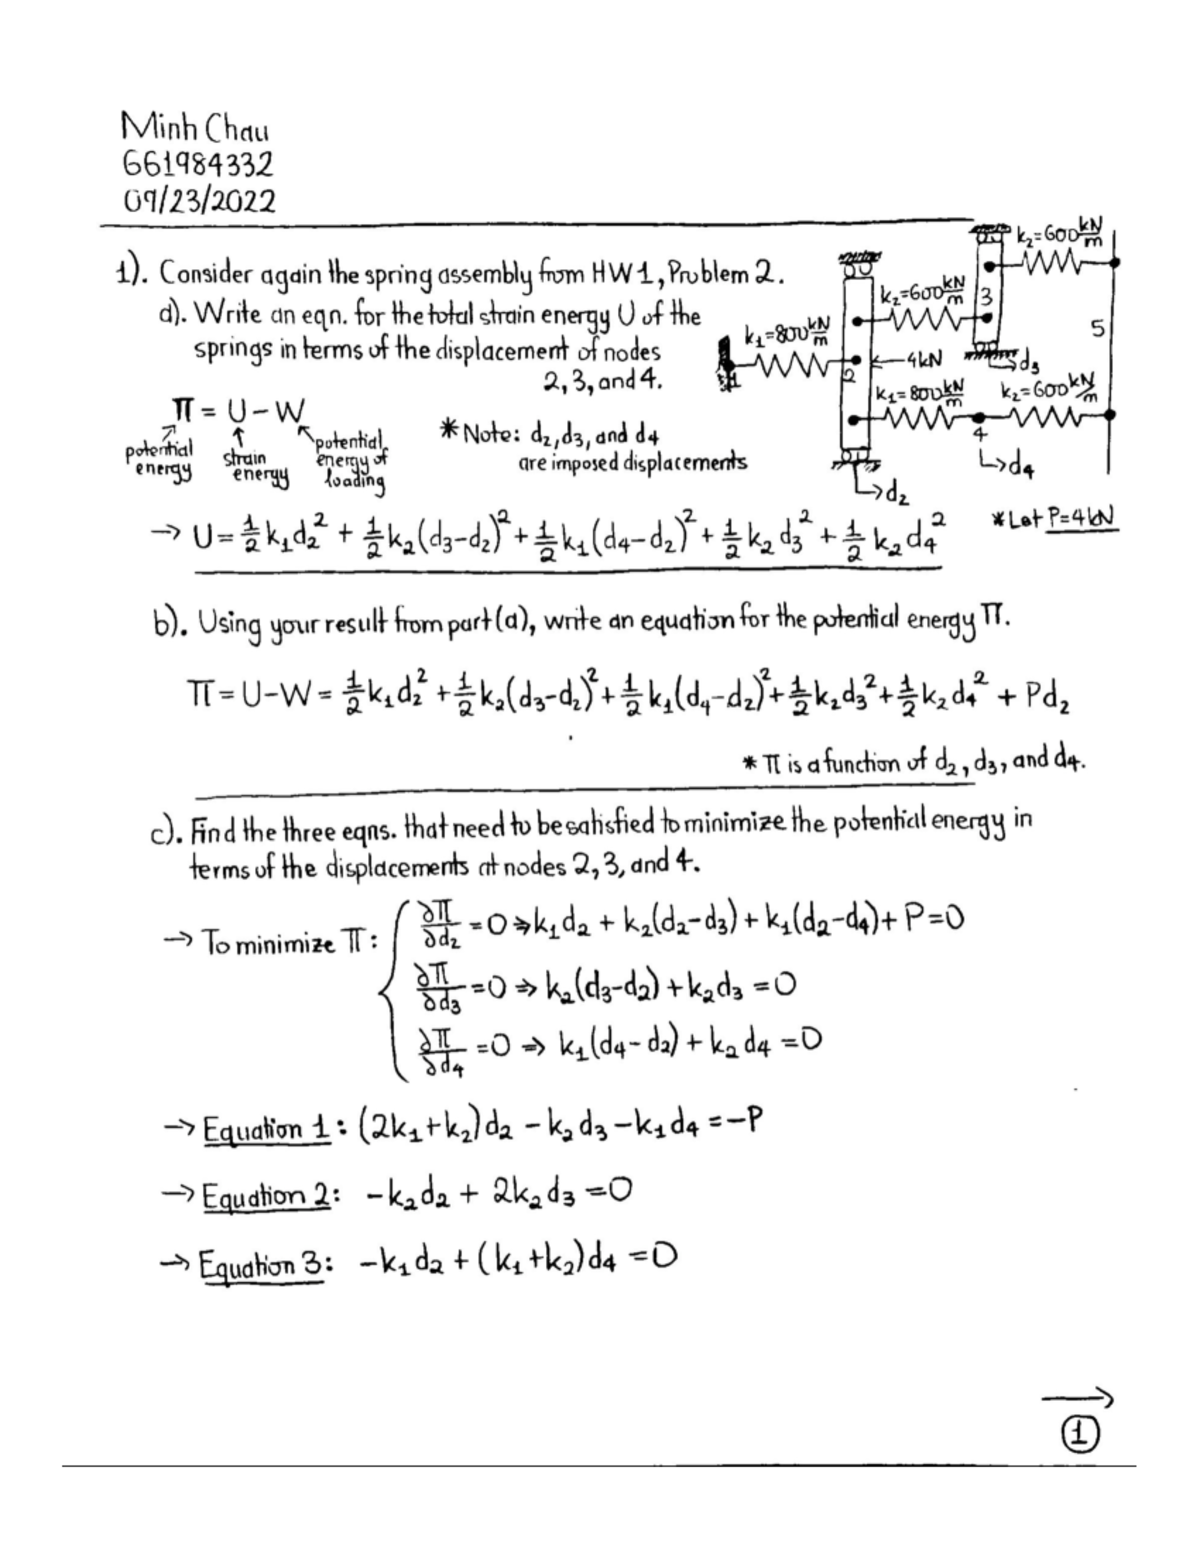 Minh Chau
661984332
09/23/2022
1). Consider again the spring assembly from HW1, Problem 2.
d). Write an eqn. for the total strain energy U of the
springs in terms of the displacement of nodes
2, 3, and 4.
π = U - W
potential energy
strain energy
potential energy of loading
* Note: d₂, d₃, and d₄
are imposed displacements
k₂=600 kN/m
k₂=600 kN/m
3
5
k₁=800 kN/m
4kN
d₃
1
2
k₁=800 kN/m
k₂=600 kN/m
4
d₄
d₂
* Let P=4kN
→ U = ½k₁d₂² + ½k₂(d₃-d₂)² + ½k₁(d₄-d₂)² + ½k₂d₃² + ½k₂d₄²
b). Using your result from part (a), write an equation for the potential energy π.
π = U-W = ½k₁d₂² + ½k₂(d₃-d₂)² + ½k₁(d₄-d₂)² + ½k₂d₃² + ½k₂d₄² + Pd₂
* π is a function of d₂, d₃, and d₄.
c). Find the three eqns. that need to be satisfied to minimize the potential energy in
terms of the displacements at nodes 2, 3, and 4.
→ To minimize π:
∂π/∂d₂ = 0 ⇒ k₁d₂ + k₂(d₂-d₃) + k₁(d₂-d₄) + P = 0
∂π/∂d₃ = 0 ⇒ k₂(d₃-d₂) + k₂d₃ = 0
∂π/∂d₄ = 0 ⇒ k₁(d₄-d₂) + k₂d₄ = 0
→ Equation 1: (2k₁+k₂)d₂ - k₂d₃ - k₁d₄ = -P
→ Equation 2: -k₂d₂ + 2k₂d₃ = 0
→ Equation 3: -k₁d₂ + (k₁+k₂)d₄ = 0
→
1